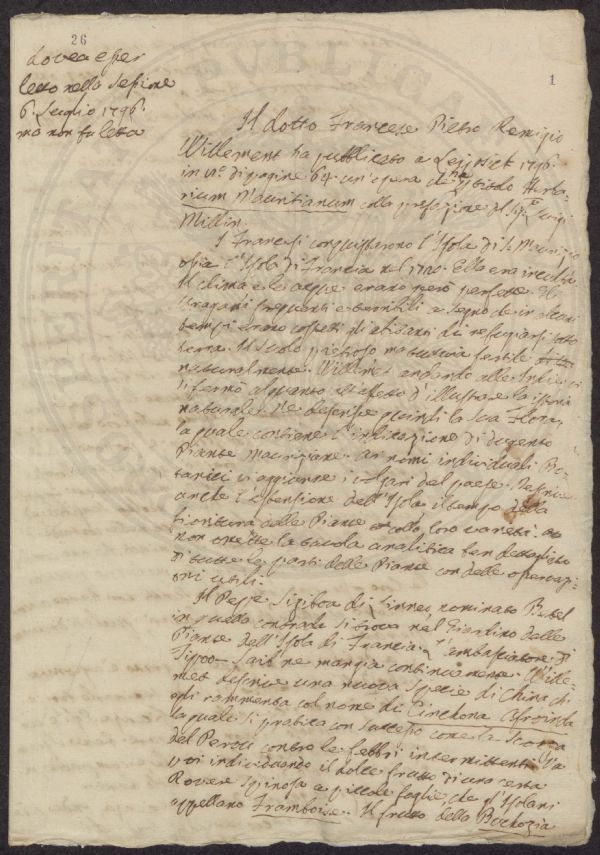 26
dovea esser
letto nella Sessione
6. Luglio 1796.
ma non fu letta
1
Il dotto Francese Pietro Remigio
Willemet ha pubblicato a Leipsick 1796.
in di pagine 64. un'opera che ha p titolo Herba-
rium Mauritianum colla prefazione del Sig.e Luigi
Millin.
I Francesi conquistarono l'Isola di S. Maurizio
ossia l'Isola di Francia nel 1720. Ella era incolta
Il clima e le acque erano però perfette. Gli
Uragani frequenti e terribili a segno che in alcuni
tempi erano costretti gli abitanti di refugiarsi sotto
terra. Il Suolo pietroso ma tuttavia fertile
naturalmente. Willemet andando alle Indie vi
si fermò alquanto ad effetto d'illustrare la istoria
naturale. Ne descrisse quindi la sua Flora,
la quale contiene l'indicazione di dugento
Piante Mauriziane. Ai nomi individuali Bo-
tanici vi aggiunse i volgari del paese. Descrive
anche l'estensione dell'Isola, il tempo della
fioritura delle Piante colle loro varietà.
non omette la tavola analitica ben dettagliata
di tutte le parti delle Piante con delle operazi-
oni utili.
Il Pesse di Linneo nominato
in quella contrada si trova nel Giardino delle
Piante dell'Isola di Francia. L'ambasciatore di
Tippoo-Saib ne mangia continuamente. Wille-
met descrive una nuova Specie di China ch'
egli rammenta col nome di Cinchona Afroinda
la quale si pratica con successo come la Scorza
del Perou contro le febbri intermittenti. Va
poi individuando il dolce frutto di una certa
Rovere Spinosa a piccole foglie, che gl'Isolani
appellano Framboise. Il frutto della